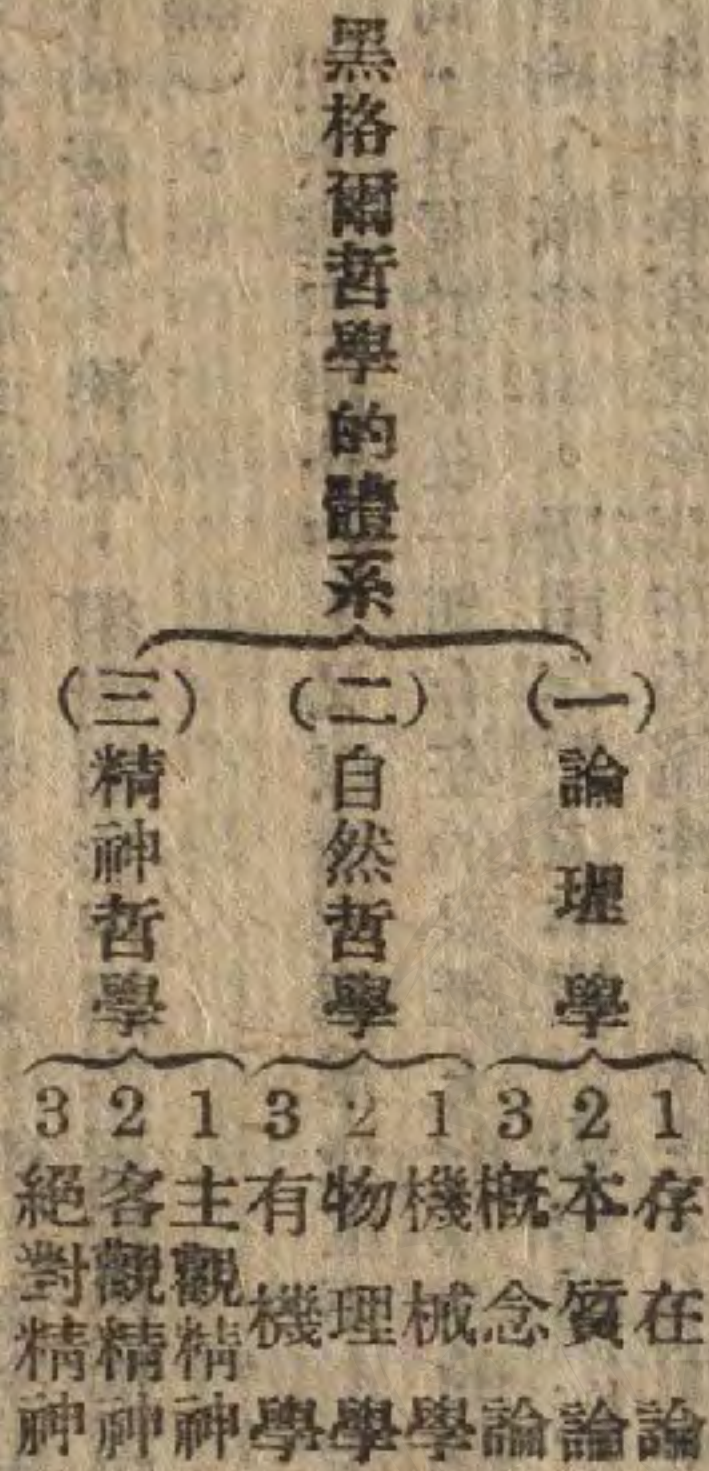 黑格爾哲學的體系
(一)論理學
1存在論
2本質論
3概念論
(二)自然哲學
1機械學
2物理學
3有機學
(三)精神哲學
1主觀精神
2客觀精神
3絕對精神